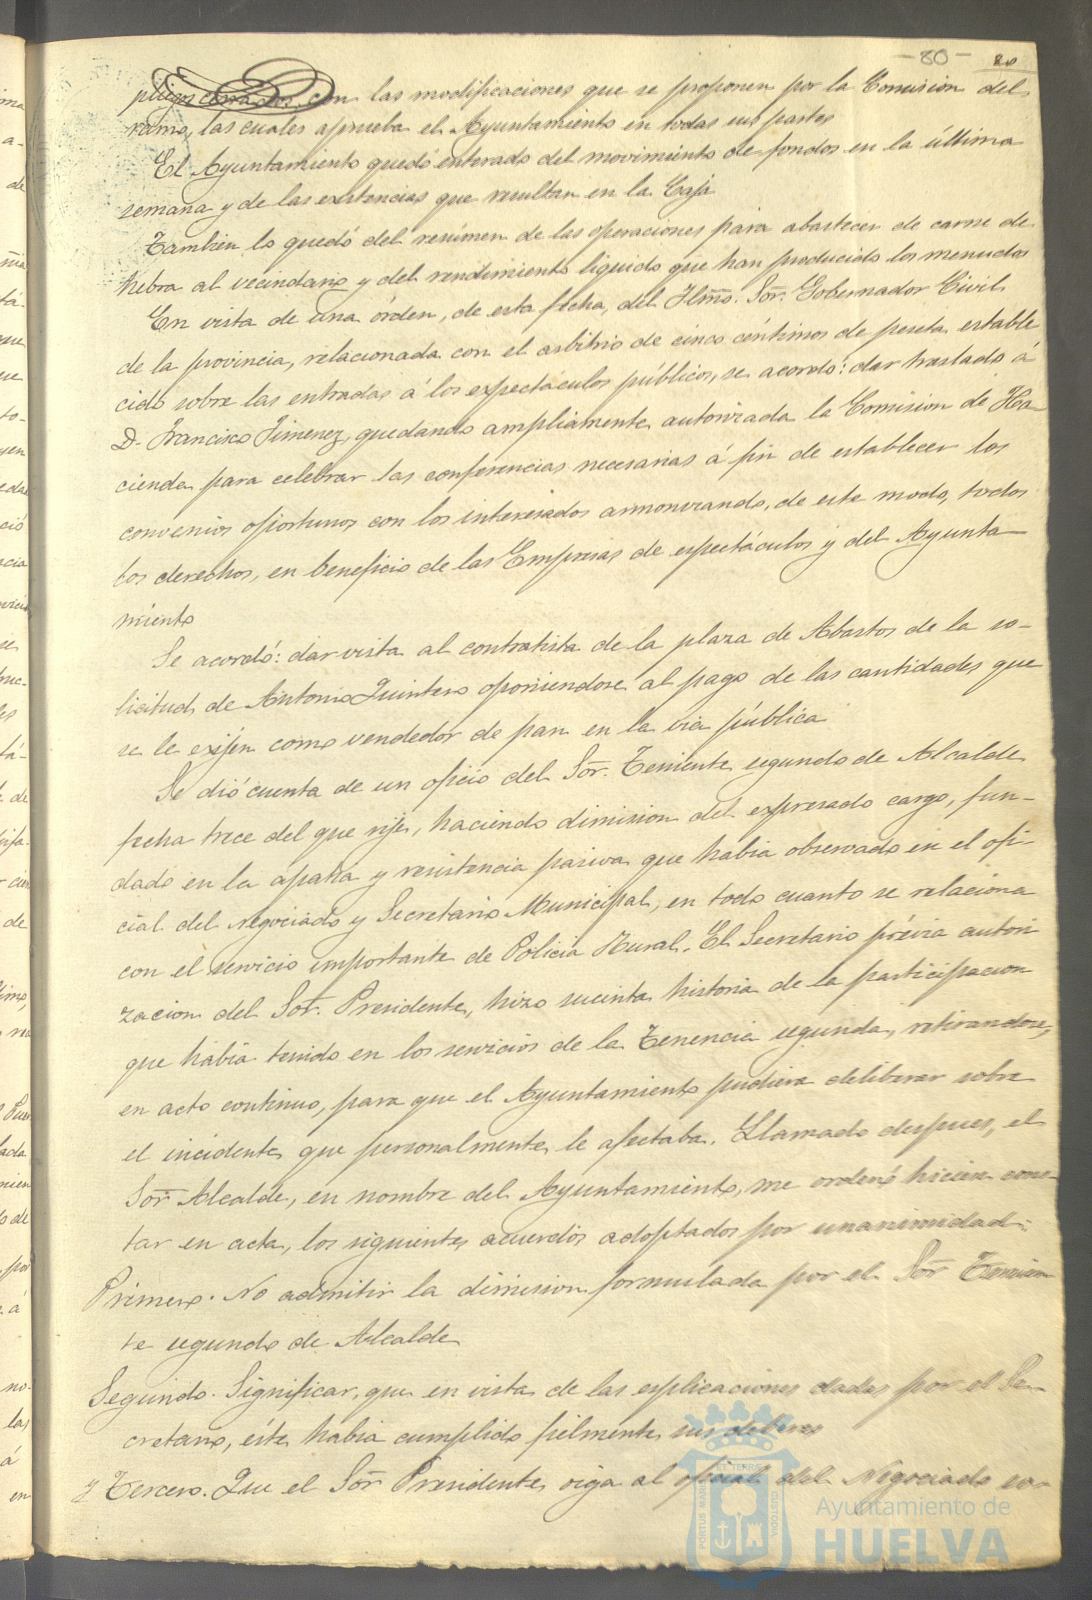 -80- 80
pliegos cerrados con las modificaciones que se proponen por la Comision del
ramo, las cuales aprueba el Ayuntamiento en todas sus partes
El Ayuntamiento quedó enterado del movimiento de fondos en la última
semana y de las existencias que resultan en la Caja
Tambien lo quedó del resúmen de las operaciones para abastecer de carne de
hebra al vecindario y del rendimiento líquido que han producido los menudos
En vista de una órden, de esta fecha, del Ilmo. Sor. Gobernador Civil
de la provincia, relacionada con el arbitrio de cinco céntimos de peseta estable
cido sobre las entradas á los espectáculos públicos, se acordó: dar traslado á
D. Francisco Jimenez, quedando ampliamente autorizada la Comision de Ha-
cienda para celebrar las conferencias necesarias á fin de establecer los
convenios oportunos con los interesados armonizando, de este modo, todos
los derechos, en beneficio de las Empresas de espectáculos y del Ayunta-
miento
Se acordó: dar vista al contratista de la plaza de Abastos de la so-
licitud de Antonio Quintero oponiendose al pago de las cantidades que
se le exijen como vendedor de pan en la via pública
Se dió cuenta de un oficio del Sor. Teniente segundo de Alcalde
fecha trece del que rije, haciendo dimision del expresado cargo, fun-
dado en la apatia y resistencia pasiva que habia observado en el ofi-
cial del negociado y Secretario Municipal, en todo cuanto se relaciona
con el servicio importante de Policia Rural. El Secretario prévia autori
zacion del Sor. Presidente, hizo sucinta historia de la participacion
que habia tenido en los servicios de la Tenencia segunda, retirandose,
en acto continuo, para que el Ayuntamiento pudiera deliberar sobre
el incidente que personalmente le afectaba. Llamado despues, el
Sor Alcalde, en nombre del Ayuntamiento, me ordenó hiciera cons-
tar en acta, los siguientes acuerdos adoptados por unanimidad:
Primero. No admitir la dimision formulada por el Sor Tenien
te segundo de Alcalde
Segundo. Significar, que en vista de las esplicaciones dadas por el Se-
cretario, éste habia cumplido fielmente sus deberes
y Tercero. Que el Sor Presidente oiga al oficial del Negociado en-
PORTUS MARIS ET TERRE CUSTODIA
Ayuntamiento de
HUELVA